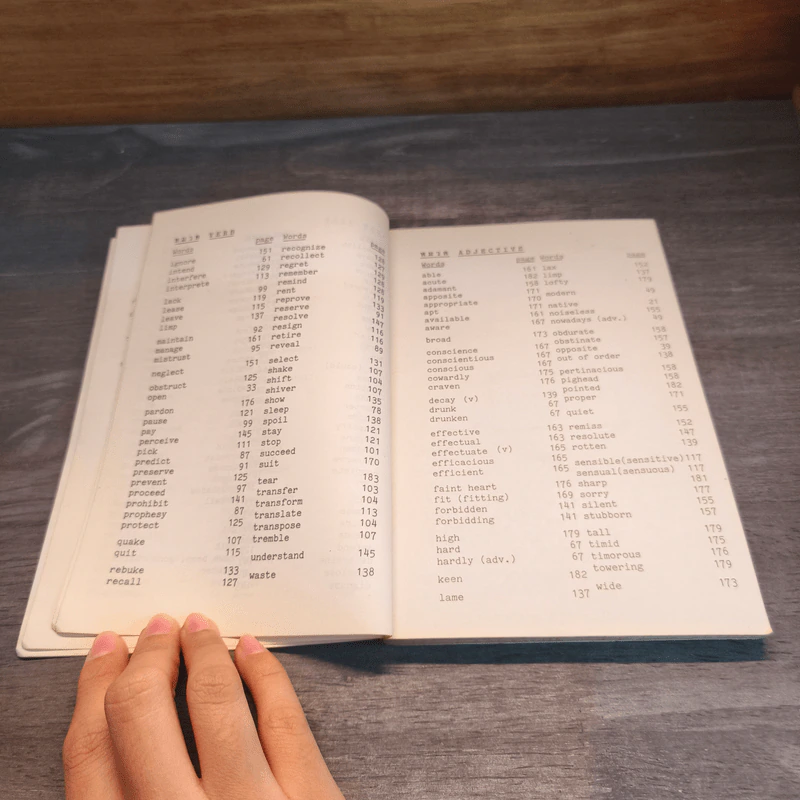 MAIN VERB
Words page
ignore 151
intend 61
interfere 129
interprete 113
lack 99
lease 119
leave 115
limp 137
maintain 92
manage 161
mistrust 95
neglect 151
obstruct 125
open 33
pardon 176
pause 121
pay 99
perceive 145
pick 111
predict 87
preserve 91
prevent 125
proceed 97
prohibit 141
prophesy 87
protect 125
quake 107
quit 115
rebuke 133
recall 127
Words page
recognize
recollect
regret
remember
remind 128
rent 119
reprove 133
reserve 91
resolve 147
resign 116
retire 116
reveal 89
select 131
shake 107
shift 104
shiver 107
show 135
sleep 78
spoil 138
stay 121
stop 121
succeed 101
suit 170
tear 183
transfer 103
transform 104
translate 113
transpose 104
tremble 107
understand 145
waste 138
MAIN ADJECTIVE
Words page
able 161
acute 182
adement 158
apposite 171
appropriate 170
apt 171
available 161
aware 167
broad 173
conscience 167
conscientious 167
conscious 167
cowardly 175
craven 176
decay (v) 139
drunk 67
drunken 67
effective 163
effectual 163
effectuate (v) 165
efficacious 165
efficient 165
faint heart 176
fit (fitting) 169
forbidden 141
forbidding 141
high 179
hard 67
hardly (adv.) 67
keen 182
lame 137
Words page
lax 152
limp 137
lofty 179
modern 49
native 21
noiseless 155
nowadays (adv.) 49
obdurate 158
obstinate 157
opposite 39
out of order 138
pertinacious 158
pighead 158
pointed 182
proper 171
quiet 155
remiss 152
resolute 147
rotten 139
sensible(sensitive)117
sensual(sensuous) 117
sharp 181
sorry 177
silent 155
stubborn 157
tall 179
timid 175
timorous 176
towering 179
wide 173